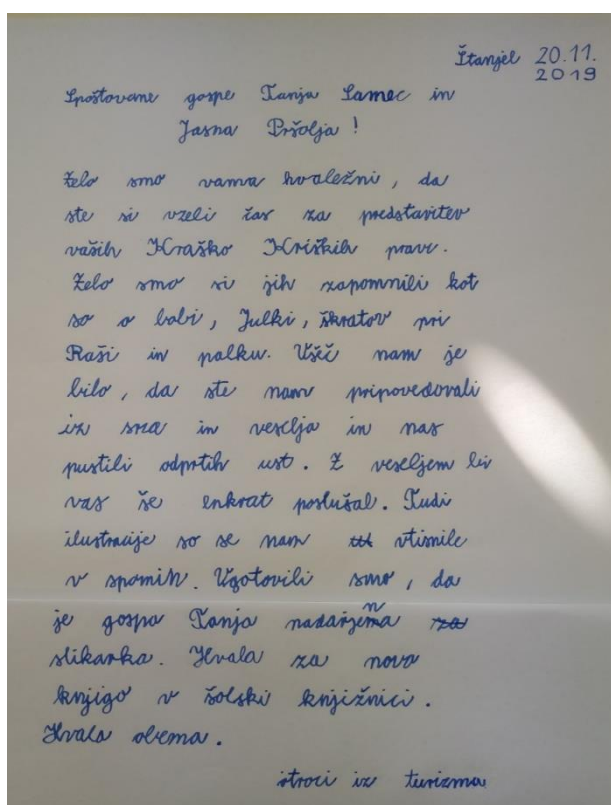 Štanjel 20.11.
2019
Spoštovane gospe Tanja Samec in
Jasna Pršolja!
Zelo smo vama hvaležni, da
ste si vzeli čas za predstavitev
vaših Kraško Kriških pravc.
Zelo smo si jih zapomnili kot
so o babi, Julki, škratov pri
Raši in palku. Všeč nam je
bilo, da ste nam pripovedovali
iz srca in veselja in nas
pustili odprtih ust. Z veseljem bi
vas še enkrat poslušal. Tudi
ilustracije so se nam vtisnile
v spomin. Ugotovili smo, da
je gospa Tanja nadarjena
slikarka. Hvala za novo
knjigo v šolski knjižnici.
Hvala obema.
otroci iz turizma